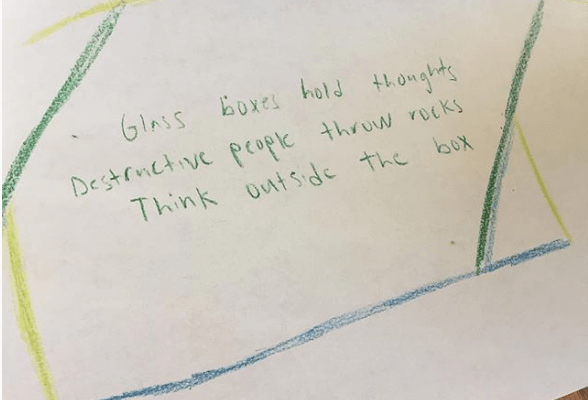 Glass boxes hold thoughts
Destructive people throw rocks
Think outside the box